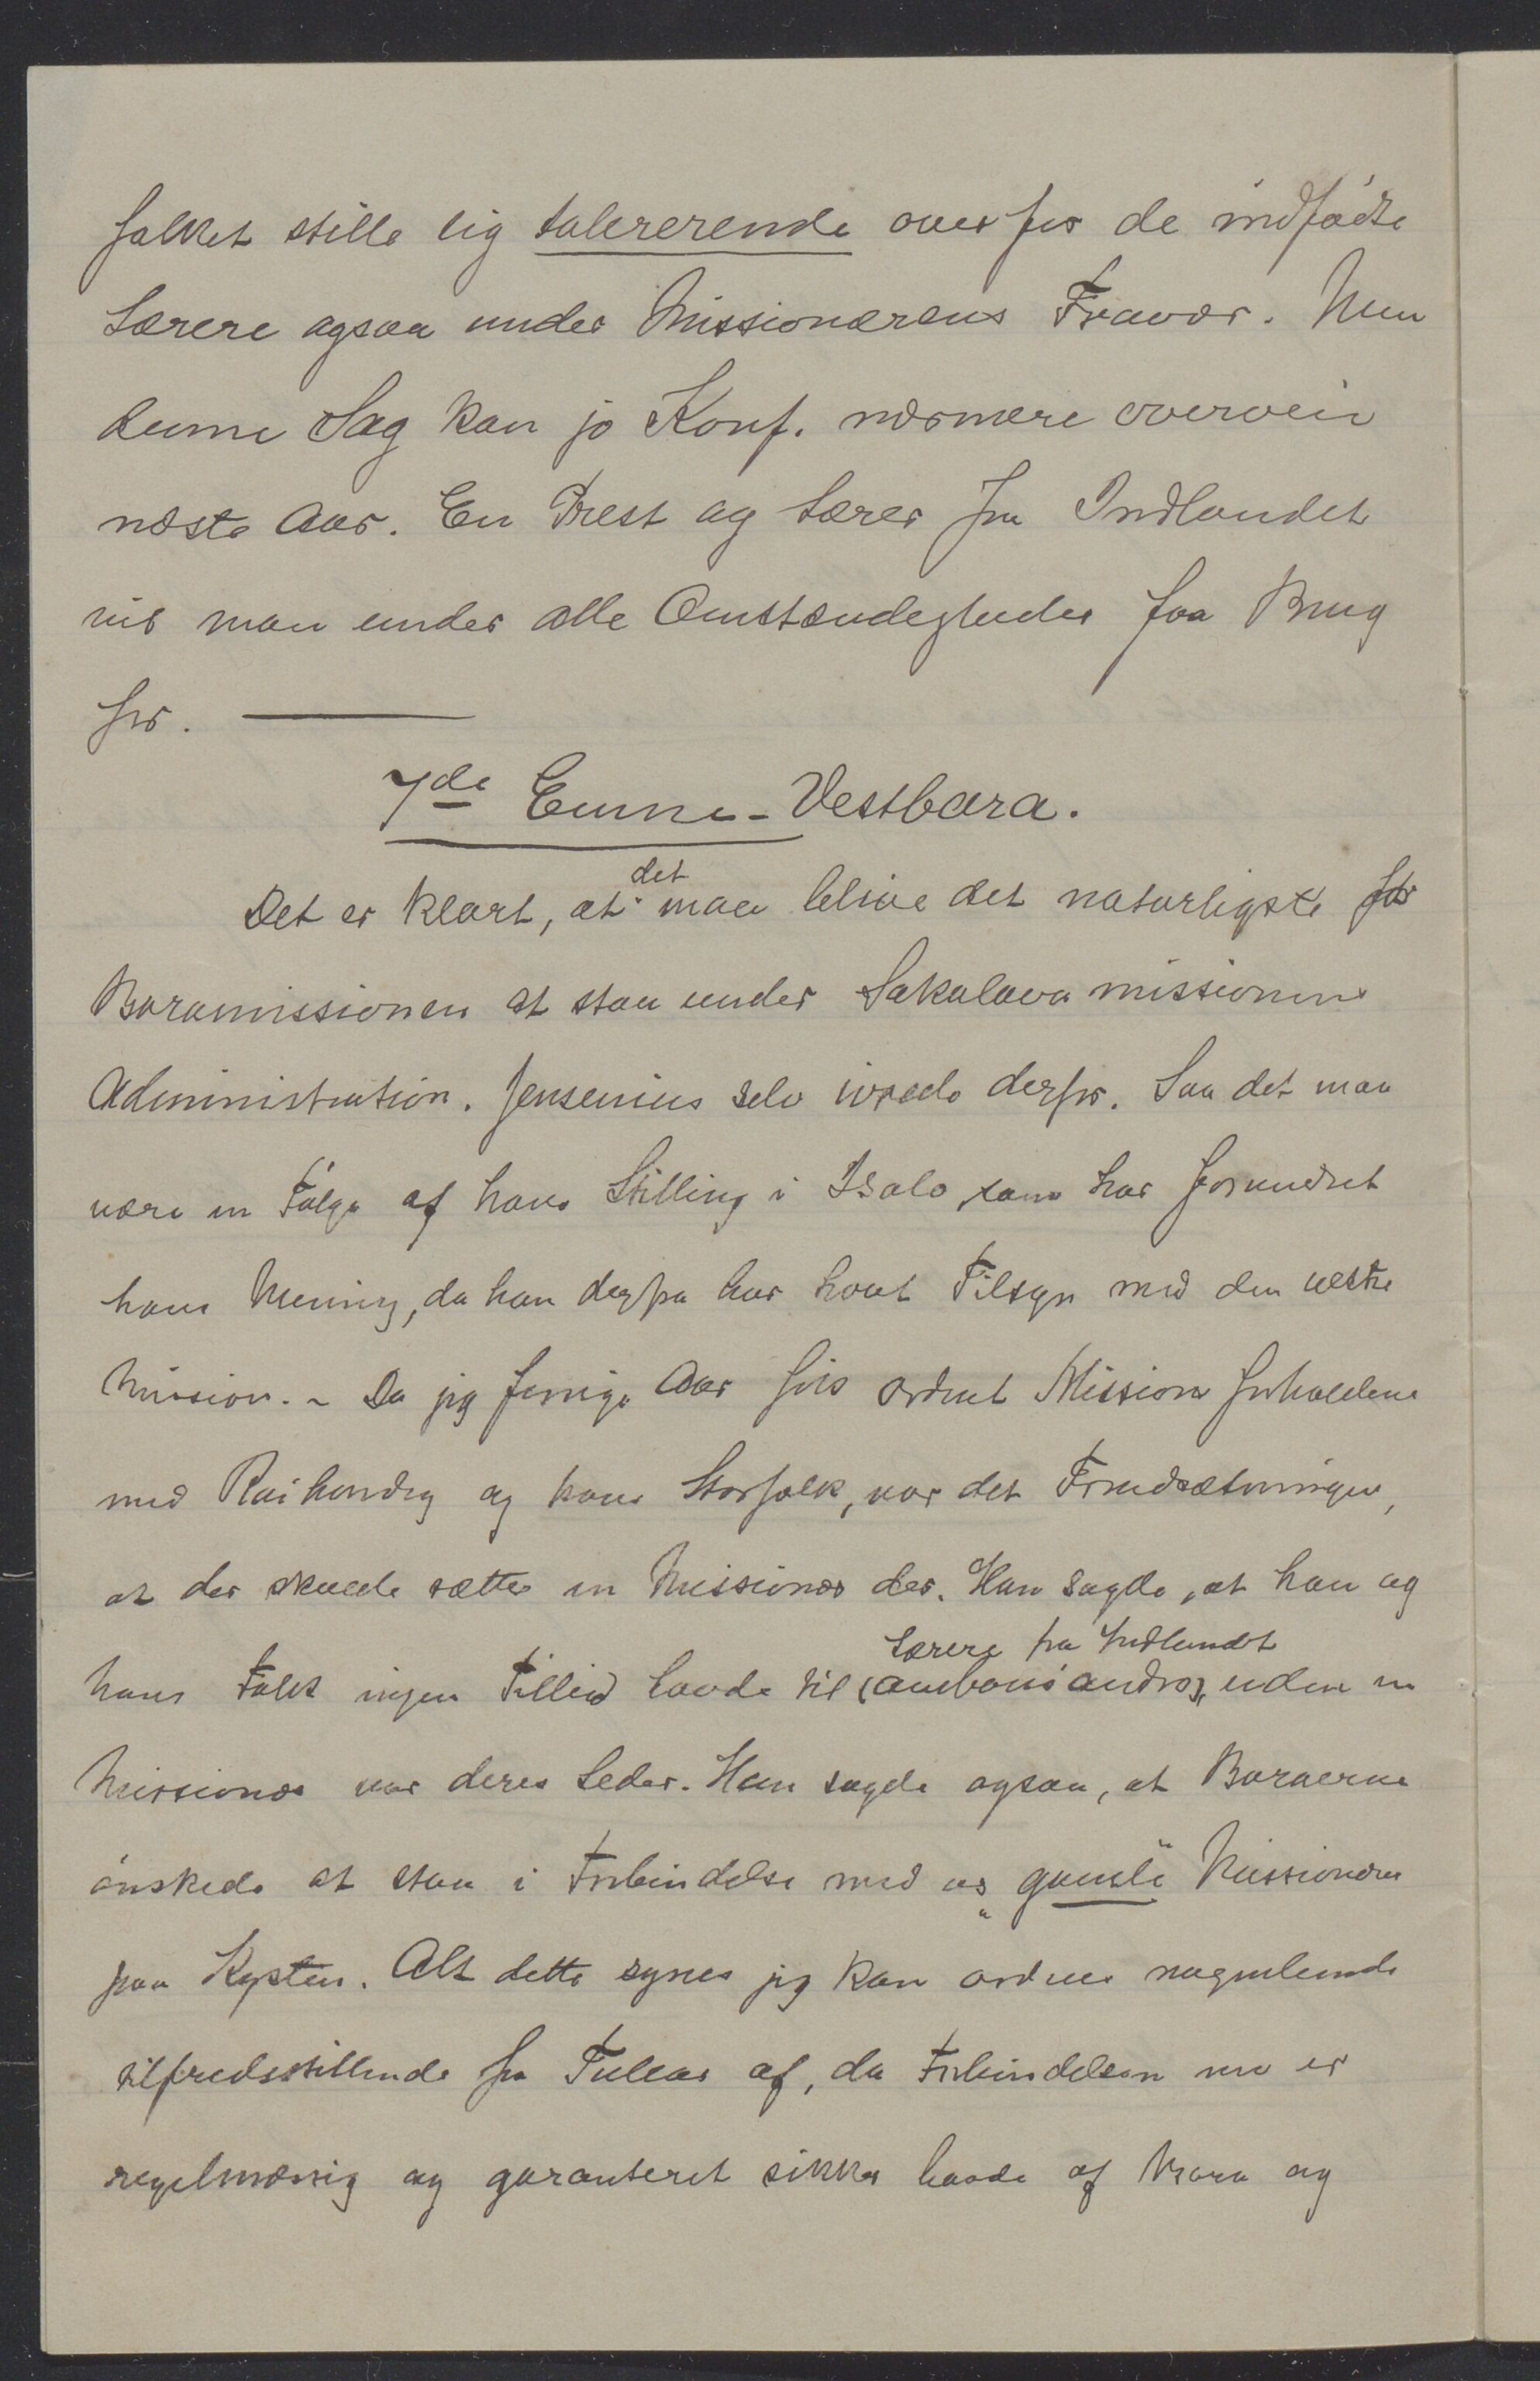 folket stille sig tolererende overfor de indfødte
Lærere ogsaa under Missionærens Fravær. Men
denne Sag kan jo Konf. nærmere overveie
næste Aar. En Prest og Lærer fra Indlandet
vil man under alle Omstændigheder faa Brug
for. ———
7de Emne - Vestbara.
Det er klart, at det maa blive det naturligste for
Baramissionen at staa under Sakalavamissionens
Administration. Jensenius selv ivrede derfor. Saa det maa
være en Følge af hans Stilling i Isalo, som har forandret
hans Mening, da han derfra har havt Tilsyn med den vestre
Mission. - Da jeg forrige Aar fik ordnet Missionsforholdene
med Raihandry og hans Storfolk, var det Forudsætningen,
at der skulde sættes en Missionær der. Han sagde, at han og
hans Folk ingen Tillid havde til (amboniandro), Lærere fra Indlandet uden en
Missionær var deres Leder. Han sagde ogsaa, at Baraerne
ønskede at staa i Forbindelse med os „gamle" Missionærer
paa Kysten. Alt dette synes jeg kan ordnes nogenlunde
tilfredsstillende fra Tullear af, da Forbindelsen nu er
regelmæssig og garanteret sikker baade af Bara og